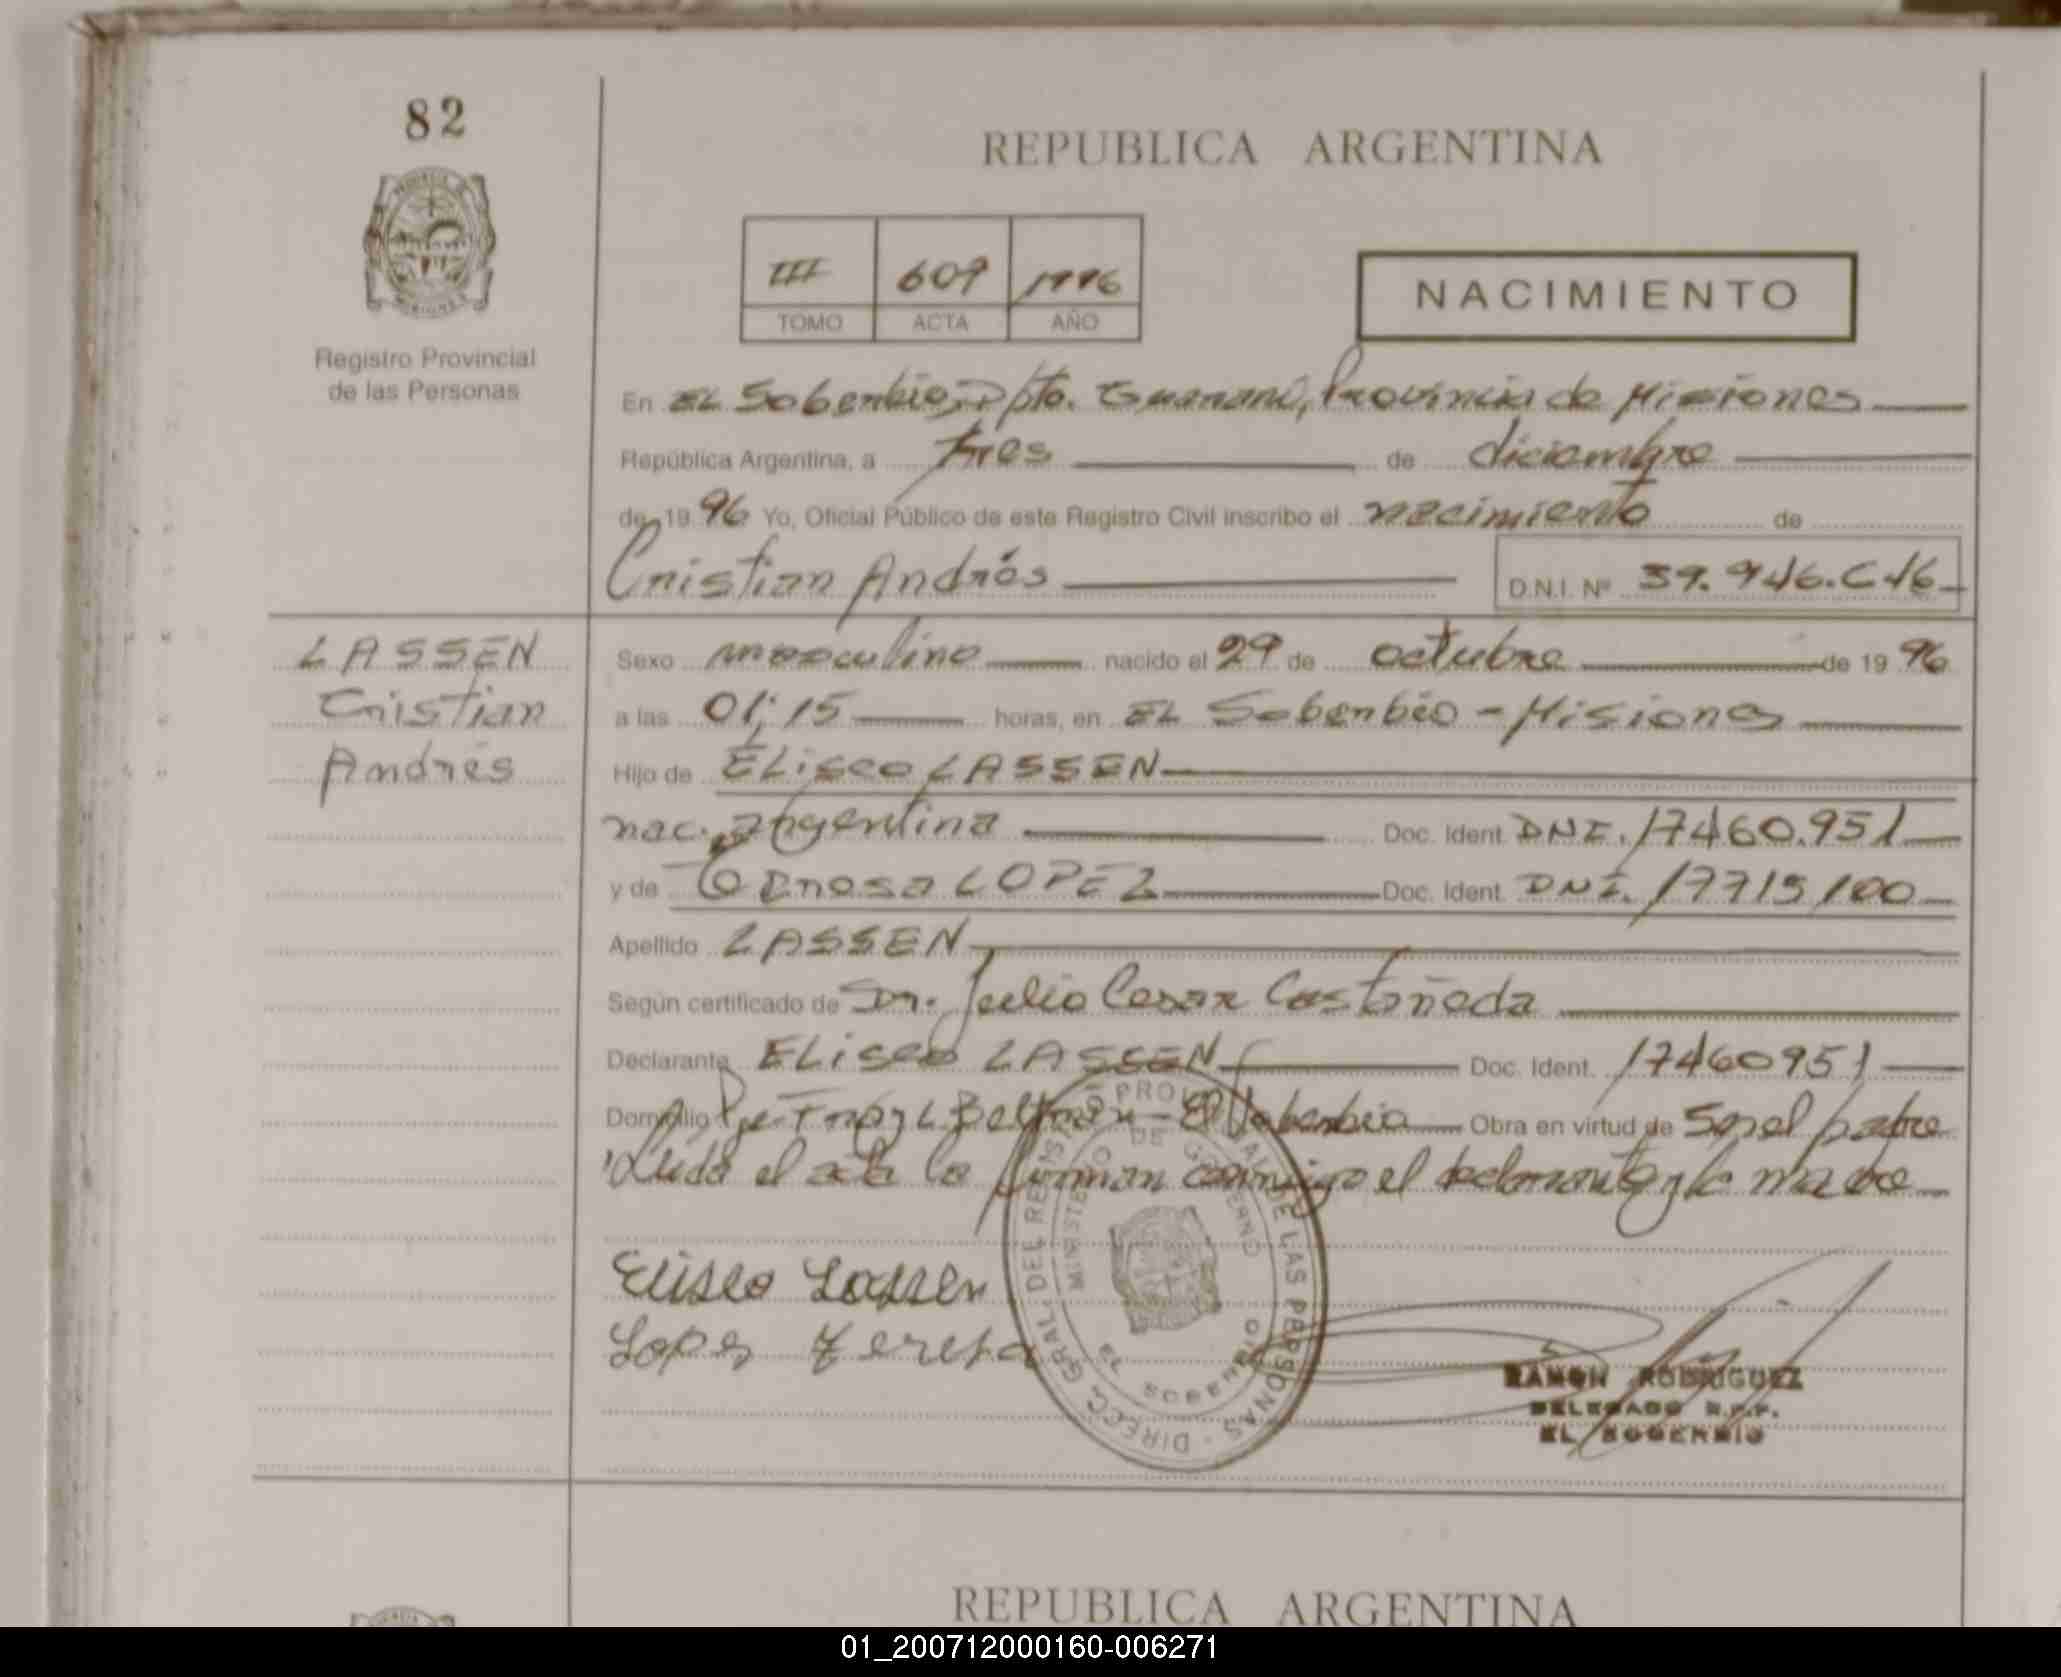 82
REPUBLICA ARGENTINA
III 609 1996
TOMO ACTA AÑO
NACIMIENTO
Registro Provincial
de las Personas
En EL Soberbio, Dpto. Guaraní, Provincia de Misiones
República Argentina, a tres de diciembre
de 19 96 Yo, Oficial Público de este Registro Civil inscribo el nacimiento de
Cristian Andrés D.N.I. Nº 39.946.
LASSEN
Cristian
Andrés
Sexo masculino nacido el 29 de octubre de 19 96
a las 01;15 horas, en EL Soberbio - Misiones
Hijo de ELiseo LASSEN
nac. argentina Doc. Ident. DNI. 17460.951
y de LOPEZ Doc. Ident. DNI. 17715100
Apellido LASSEN
Según certificado de Dr. Julio Cesar Castañeda
Declarante ELiseo LASSEN Doc. Ident. 17460951
Domicilio Fray L Beltrán - El Soberbio Obra en virtud de Ser el padre
Leída el acta la firman conmigo el declarante y la madre
Eliseo Lassen
Lopez
DIRECC. GRAL. DEL REGISTRO PROVINCIAL DE LAS PERSONAS
MINISTERIO DE GOBIERNO
EL SOBERBIO
RAMON RODRIGUEZ
DELEGADO R.P.P.
EL SOBERBIO
REPUBLICA ARGENTINA
01_200712000160-006271